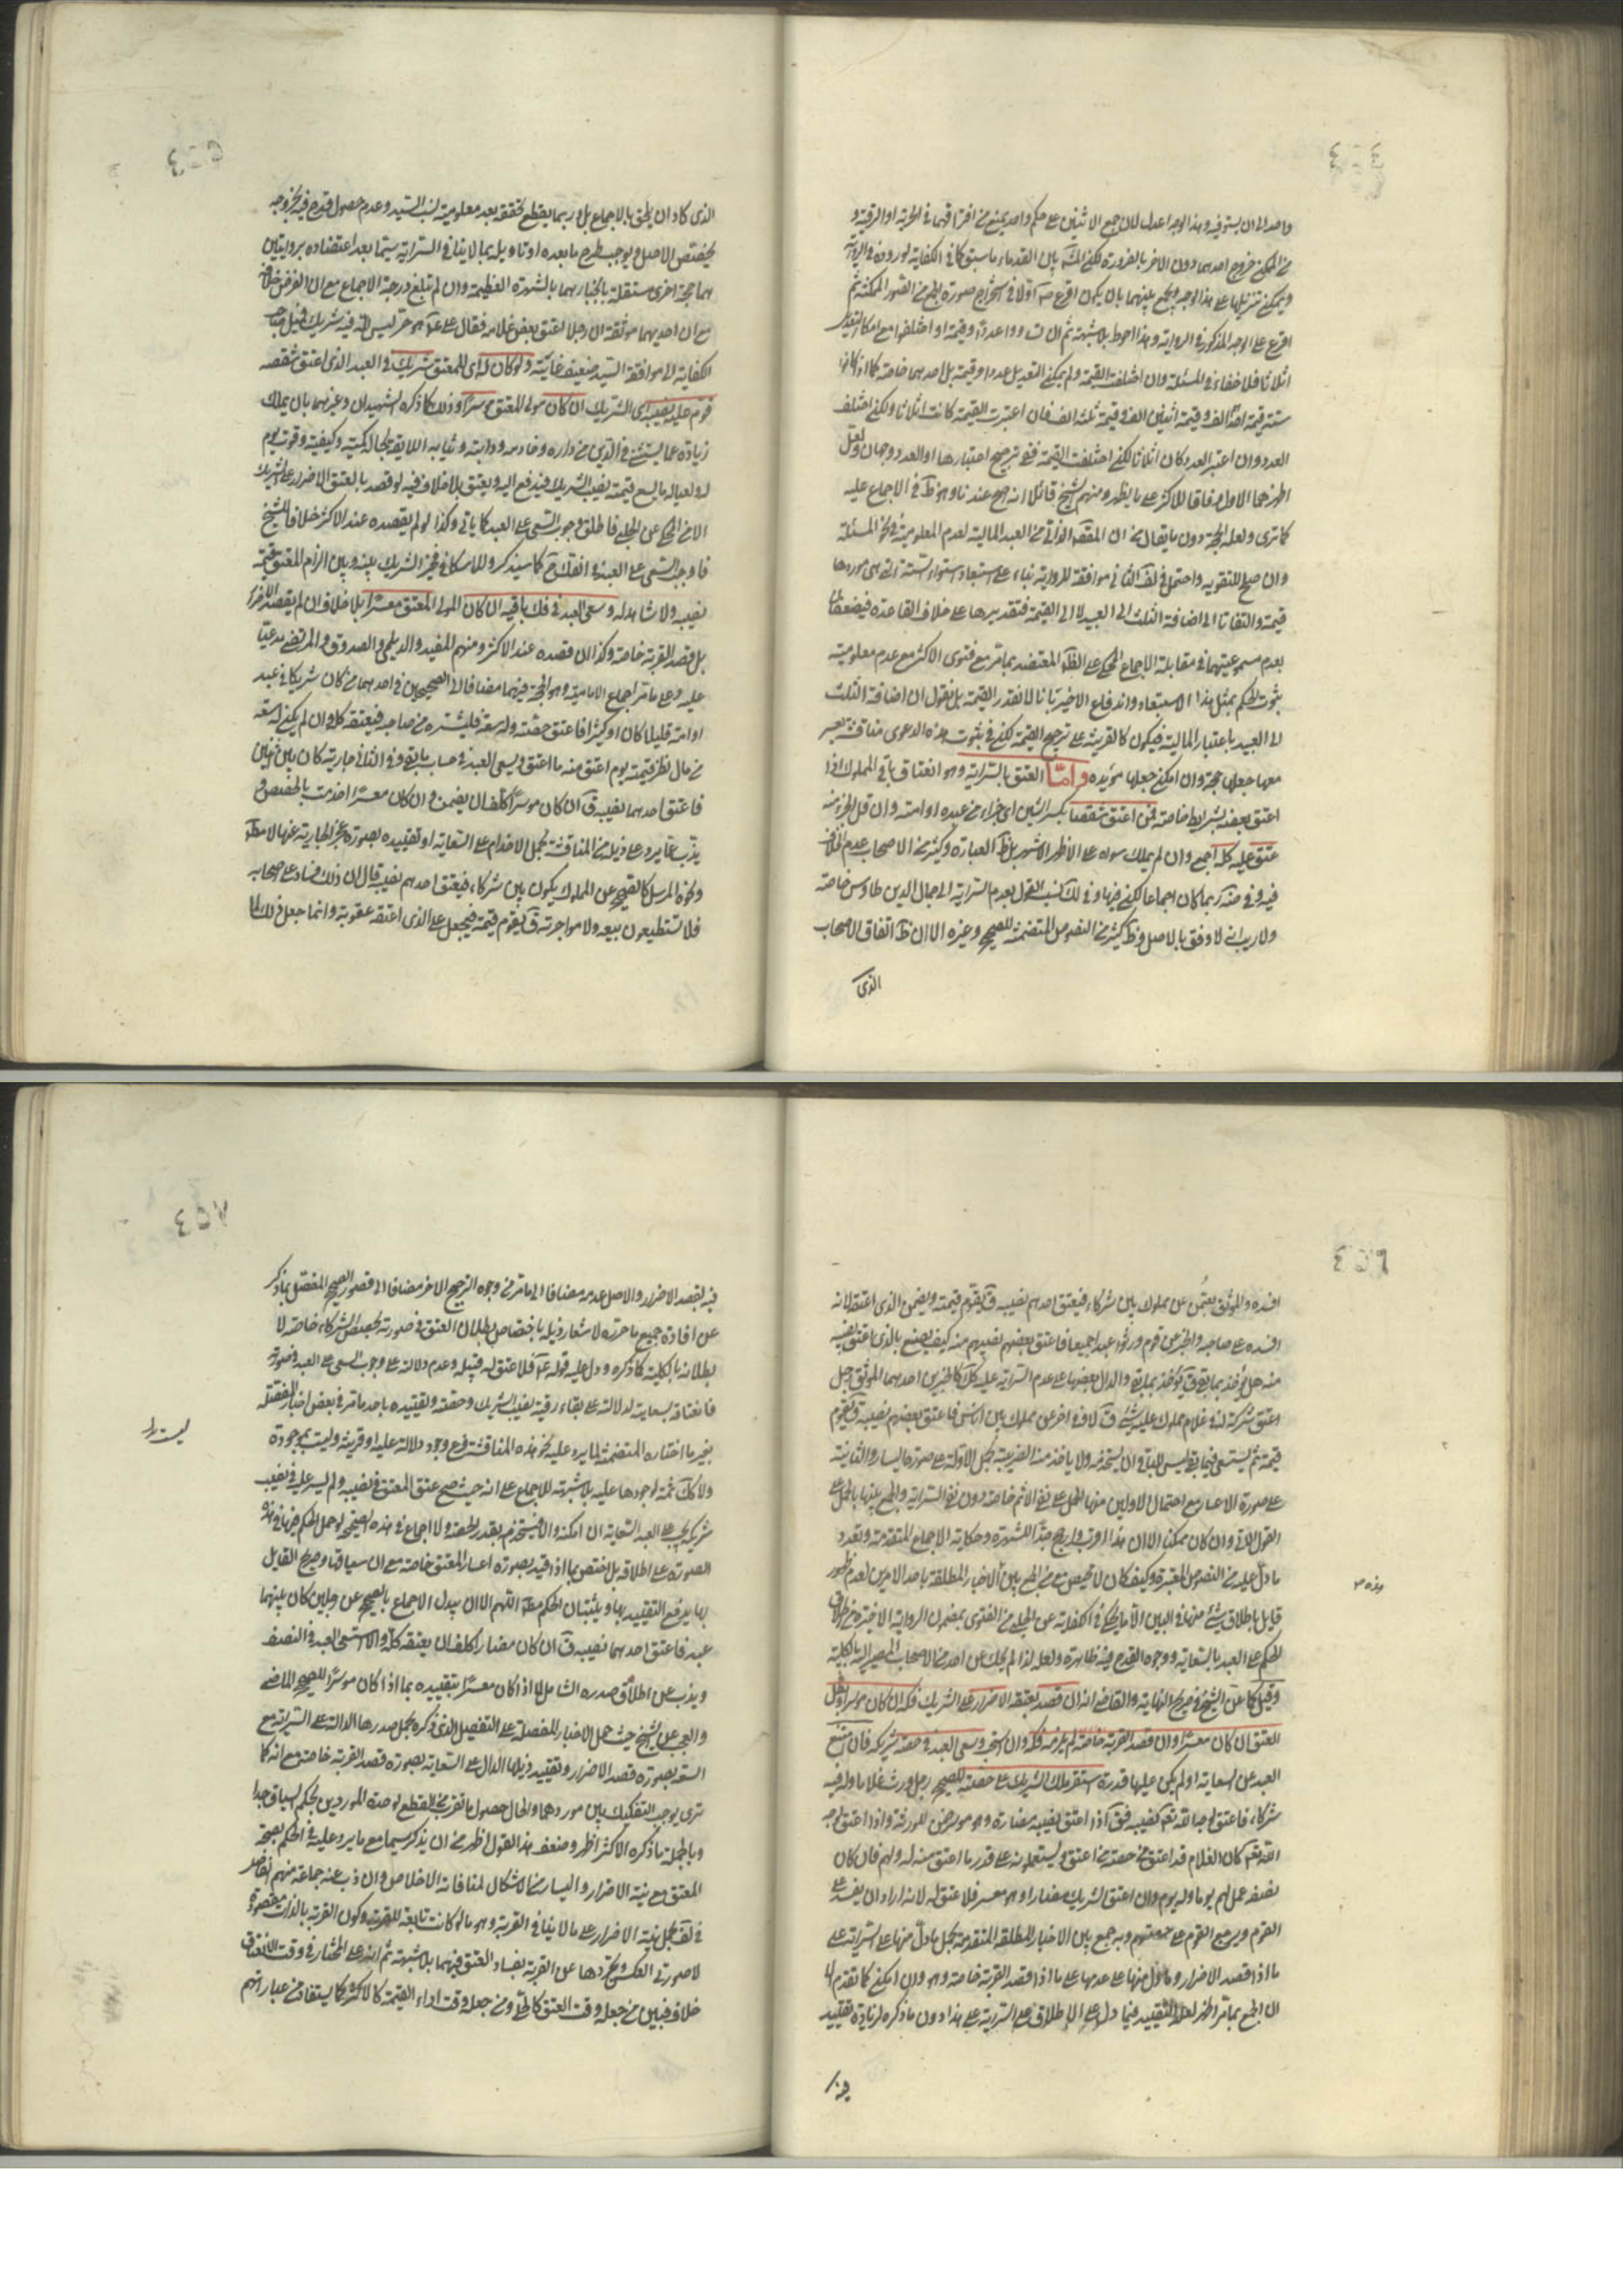 واحد الى ان يستوفيه وهذا الوجه اعدل لان جمع الاثنين على حكم واحد يمنع من افتراقهما في الحرية او الرقية و
من الممكن خروج احدهما دون الاخر بالضرورة لكن المشهور بين القدماء ما سبق كما في الكفاية لوروده في الرواية
ويمكن تنزيلها على هذا الوجه والجمع بينهما بان يكون اقرع اولا في استخراج صورة الجمع من الصور الممكنة ثم
اقرع على الوجه المذكور في الرواية وهذا احوط بلا شبهة ثم ان تساووا عددا وقيمة او اختلفوا مع امكان التعديل
اثلاثا فلا خفاء في المسئلة وان اختلفت القيمة ولم يمكن التعديل عددا وقيمة بل احدهما خاصة كما اذا كانوا
ستة قيمة احدهم الف وقيمة اثنين الف وقيمة ثلثة الف فان اعتبرت القيمة كانت اثلاثا ولكن اختلف
العدد وان اعتبر العدد كان اثلاثا لكن اختلفت القيمة ففي ترجيح اعتبارها او العدد وجهان ولعل
اظهرهما الاول وفاقا للاكثر على ما يظهر ومنهم الشيخ قائلا انه اصح عندنا وهو ظ في الاجماع عليه
كما ترى ولعله الحجة دون ما يقال من ان المقصد الذاتي من العبد المالية لعدم المعلومية في نحو المسئلة
وان صلح للتقوية واحتمل في لف الثاني موافقة للرواية بناء على استبعاد استواء الستة التي هي موردها
قيمة والتفاتا الى اضافة الثلث الى العبيد لا الى القيمة فتقديرها على خلاف القاعدة فيضعفان
بعدم مسموعيتهما في مقابلة الاجماع المحكي على الظ المعتضد بما مر مع فتوى الاكثر مع عدم معلومية
ثبوت الحكم بمثل هذا الاستبعاد واندفاع الاخير بانا لا نقدر القيمة بل نقول ان اضافة الثلث
الى العبيد باعتبار المالية فيكون كالقرينة على ترجيح القيمة لكن في ثبوت هذه الدعوى مناقشة يعسر
معها جعلها حجة وان امكن جعلها مؤيده واما العتق بالسراية وهو انعتاق باقي المملوك اذا
اعتق بعضه بشرايط خاصة فمن اعتق شقصا بكسر الشين اي جزاء من عبده او امته وان قل الجزء منه
عتق عليه كله اجمع وان لم يملك سواه على الأظهر الاشهر بل ظ العبارة وكثير من الاصحاب عدم الخلاف
فيه وفي ضه ربما كان اجماعا لكن فيها وفي لك نسب القول بعدم السراية الى جمال الدين طاوس خاصة
ولا ريب انه لاوفق بالاصل وظ كثير من النصوص المتضمنة للصحيح وغيره الا ان ظ اتفاق الاصحاب
الذي
الذي كاد ان يلحق بالاجماع بل وربما يقطع بتحققه بعد معلومية نسب السيد وعدم حصول قدح فيه بخروجه
يخصص الاصل ويوجب طرح ما بعده او تاويله بما لا ينافي السراية سيما بعد اعتضاده بروايتين
هما حجة اخرى مستقلة بانجبارهما بالشهرة العظيمة وان لم تبلغ درجة الاجماع مع ان الفرض خلافه
مع ان احديهما موثقة ان رجلا اعتق بعض غلامه فقال على ع هو حر ليس لله فيه شريك فميل صاحب
الكفاية الى موافقة السيد ضعيف غايته ولو كان له اي للمعتق شريك في العبد الذي اعتق شقصه
قوم عليه نصيبه اي الشريك ان كان مولى المعتق موسرا وذلك كما ذكره الشهيدان وغيرهما بان يملك
زيادة عما يستثنى في الدين من داره وخادمه ودابته وثيابه اللايقة بحاله كمية وكيفية وقوت يوم
له ولعياله ما يسع قيمة نصيب الشريك فيدفع اليه ويعتق بلا خلاف فيه لو قصد بالعتق الاضرار على الشريك
الا من المحكي عن الحلبي فاطلق وجوب السعي على العبد كما ياتي وكذا لو لم يقصده عند الاكثر خلافا للشيخ
فاوجب السعي على العبد كما سيذكر وللاسكافي فخير الشريك بينه وبين الزام المعتق قيمة
نصيبه ولا شاهد له وسعى العبد في فك باقيه ان كان المولى المعتق معسرا بلا خلاف ان لم يقصد الاضرار
بل قصد القربة خاصة وكذا ان قصده عند الاكثر ومنهم المفيد والديلمي والصدوق والمرتضى مدعيا
عليه وعلى ما مر اجماع الامامية وهو الحجة فيهما مضافا الى الصحيحين في احدهما من كان شريكا في عبد
او امة قليلا كان او كثيرا فاعتق حصته وله سعة فليشتره من صاحبه فيعتقه كله وان لم يكن له سعة
من مال نظر قيمته يوم اعتق منه ما اعتق ثم يسعى العبد في حساب ما بقي وفي الثاني جارية كان بين اثنين
فاعتق احدهما نصيبه ق ان كان موسرا كلف ان يضمن وان كان معسرا اخدمت بالحصص و
يذب عما يرد على ذيله من المناقشة بحمل الاخدام على السعاية او تقييده بصورة عجز الجارية عنها لا مطلقا
ونحوه المرسل كالصحيح عن المملوك يكون بين شركاء فيعتق احدهم نصيبه قال ان ذلك فساد على اصحابه
فلا تستطيعون بيعه ولا مواجرته ق يقوم قيمة فيجعل على الذي اعتقه عقوبة وانما جعل ذلك لما
افسده والموثق بعثمن عن مملوك بين شركاء فيعتق احدهم نصيبه ق يقوم قيمته ويضمن الذي اعتقه لانه
افسده على صاحبه والخبر عن قوم ورثوا عبدا جميعا فاعتق بعضهم نصيبهم منه كيف يصنع بالذي اعتق نصيبه
منه هل يؤخذ بما بقي ق يؤخذ بما بقي والدال بعضها على عدم السراية عليه كل كالخبرين احدهما الموثق رجل
اعتق شركة له في غلام مملوك عليه شئ ق لا وفي اخر عن مملوك بين اناس فاعتق بعضهم نصيبه ق يقوم
قيمة ثم يستسعى فيما بقي ليس للباقي ان يستخدمه ولا ياخذ منه الضريبة بحمل الاولة على صورة اليسار والثانية
على صورة الاعسار مع احتمال الاولين منها الحمل على نفي الاثم خاصة دون نفي السراية والجمع بينها بالحمل على
القول الاتي وان كان ممكنا الا ان هذا اقرب وارجح جدا للشهرة وحكاية الاجماع المتقدمة وتعدد
ما دل عليه من النصوص المعتبرة وكيف كان لا محيص عن الجمع بين الاخبار المطلقة باحد الامرين لعدم ظهور
قايل باطلاق شئ منها في البين الا ما يحكي في الكفاية عن الحلبي من الفتوى بمضمون الرواية الاخيرة من اطلاق
الحكم على العبد بالسعاية ووجوه القدح فيه ظاهرة ولعله لذا لم يحك عن احد من الاصحاب المصير اليه بالكلية
وقيل كما عن الشيخ في صريح النهاية والقاضي انه ان قصد بعتقه الاضرار على الشريك فكه ان كان موسرا وبطل
العتق ان كان معسرا وان قصد القربة خاصة لم يلزمه فكه وان استحب وسعى العبد في حصة شريكه فان امتنع
العبد عن السعاية او لم يكن عليها قدرة استقر ملك الشريك على حصته للصحيح رجل ورث غلاما وله فيه
شركاء فاعتق لوجه الله تعم نصيبه فق اذا اعتق نصيبه مضارة وهو موسر ضمن للورثة واذا اعتق لوجه
الله تعم كان الغلام قد اعتق من حصته من اعتق ويستعملونه على قدر ما اعتق منه له ولهم فان كان
نصفه عمل لهم يوما وله يوم وان اعتق الشريك مضارا وهو معسر فلا عتق له لانه اراد ان يفسد على
القوم ويرجع القوم على حصصهم وبه جمع بين الاخبار المطلقة المتقدمة بحمل ما دل منها على السراية على
ما اذا قصد الاضرار وما دل منها على عدمها على ما اذا قصد القربة خاصة وهو وان امكن كما تقدم الا
ان الجمع بما مر اظهر لعلة التقييد فيما دل على الاطلاق على السراية على هذا دون ما ذكره لزيادة تقييد
فيه
هذه
فيه بقصد الاضرار والاصل عدمه مضافا الى ما مر من وجوه الترجيح الاخر مضافا الى قصور الصحيح المفصل بما ذكر
عن افادة جميع ما حرره لاشعار ذيله باختصاص بطلان العتق في صورته بحصص الشركاء خاصة لا
بطلانه بالكلية كما ذكره ودل عليه قوله ع فلا عتق له قبيله وعدم دلالته على وجوب السعي على العبد في صورته
فانعتاقه بسعايته لدلالته على بقاء رقية نصيب الشريك وحصته وتقييده باحد ما مر في بعض اخبار المفصلة
بغير ما اختاره المتضمنة لما يرد عليه نحو هذه المناقشة فرع وجود دلالة عليه او قرينة وليست بموجودة
ولا كك ثمة لوجودها عليه بلا شبهة للاجماع على انه حيث صح عتق المعتق في نصيبه ولم يسر عليه في نصيب
شريكه يجب على العبد السعاية ان امكنه والا فيستخدم بقدر الحصة ولا اجماع في هذه الصحيحة لو حمل الحكم فيها في هذه
الصورة على اطلاقه بل اختص بما اذا قيد بصورة اعسار المعتق خاصة مع ان سياقها وصريح القايل
بها يدفع التقييد بها ويثبتان الحكم مطلقا اللهم الا ان يبدل الاجماع بالصحيح عن رجلين كان بينهما
عبد فاعتق احدهما نصيبه ق ان كان مضارا كلف ان يعتقه كله والا استسعى العبد في النصف
ويذب عن اطلاق صدره الشامل لما اذا كان معسرا بتقييده بما اذا كان موسرا للصحيح الماضي
والعجب عن الشيخ حيث حمل الاخبار المفصلة على التفصيل الذي ذكره بحمل صدرها الدالة على السراية مع
السعة بصورة قصد الاضرار وتقييد ذيلها الدال على السعاية بصورة قصد القربة خاصة مع انه كما
ترى يوجب التفكيك بين موردهما والحال حصول ما تقرب من القطع لوحدة الموردين بحكم السياق جدا
وبالجملة ما ذكره الاكثر اظهر وضعف هذا القول اظهر من ان يذكر سيما مع ما يرد عليه في الحكم بصحة
المعتق مع نية الاضرار واليسار من الاشكال لمنافاته الاخلاص وان ذب عنه جماعة منهم الفاضل
في لف بحمل نية الاضرار على ما لا ينافي القربة وهو ما لو كانت تابعة للقربة وكون القربة بالذات مقصودة
لا صورتي العكس وتجردها عن القربة بفساد العتق فيهما بلا شبهة ثم انه على المختار في وقت الانعتاق
خلاف فبين من جعله وقت العتق كالحلي ومن جعل وقت اداء القيمة كالاكثر كما يستفاد من عباراتهم